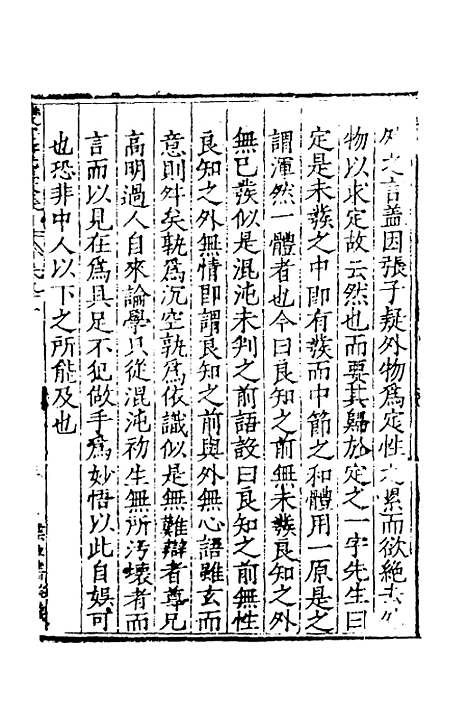 外之言蓋因張子疑外物為定性之累而欲絕去
物以求定故云然也而要其歸於定之一字先生曰
定是未發之中即有發而中節之和體用一原是之
謂渾然一體者也今曰良知之前無未發良知之外
無已發似是混沌未判之前語設曰良知之前無性
良知之外無情即謂良知之前與外無心語雖玄而
意則舛矣孰為沉空孰為依識似是無難辯者尊兄
高明過人自來論學只從混沌初生無所汚壞者而
言而以見在為具足不犯做手為妙悟以此自娛可
也恐非中人以下之所能及也